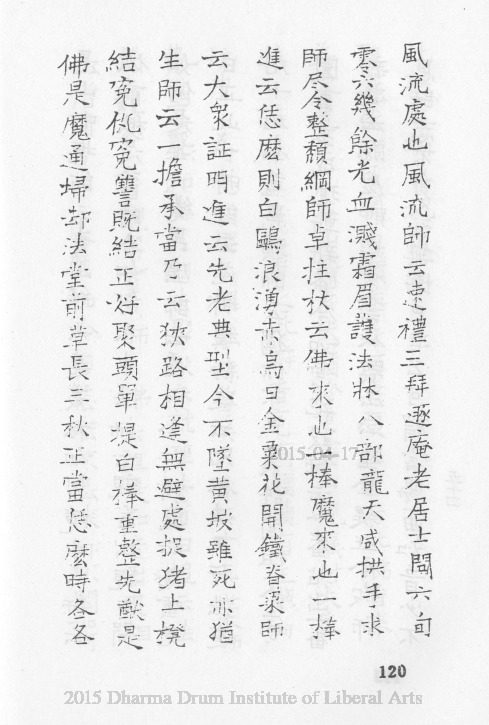 風流處也風流師云速禮三拜逐庵老居士閱六旬
零六幾餘光血濺霜眉護法牀八部龍天咸拱手求
師尽令整頹綱師卓拄杖云佛來也一棒魔來也一棒
進云恁麼則白鷗浪湧赤烏日金粟花開鐵脊梁師
云大衆証明進云先老典型今不墜黄坡雖死亦猶
生師云一擔承當乃云狹路相逢無避處捉猪上櫈
結寃仇寃讐既結正好聚頭單提白棒重整先猷是
佛是魔通埽却法堂前草長三秋正當恁麼時各各
2015-04-17
120
2015 Dharma Drum Institute of Liberal Arts